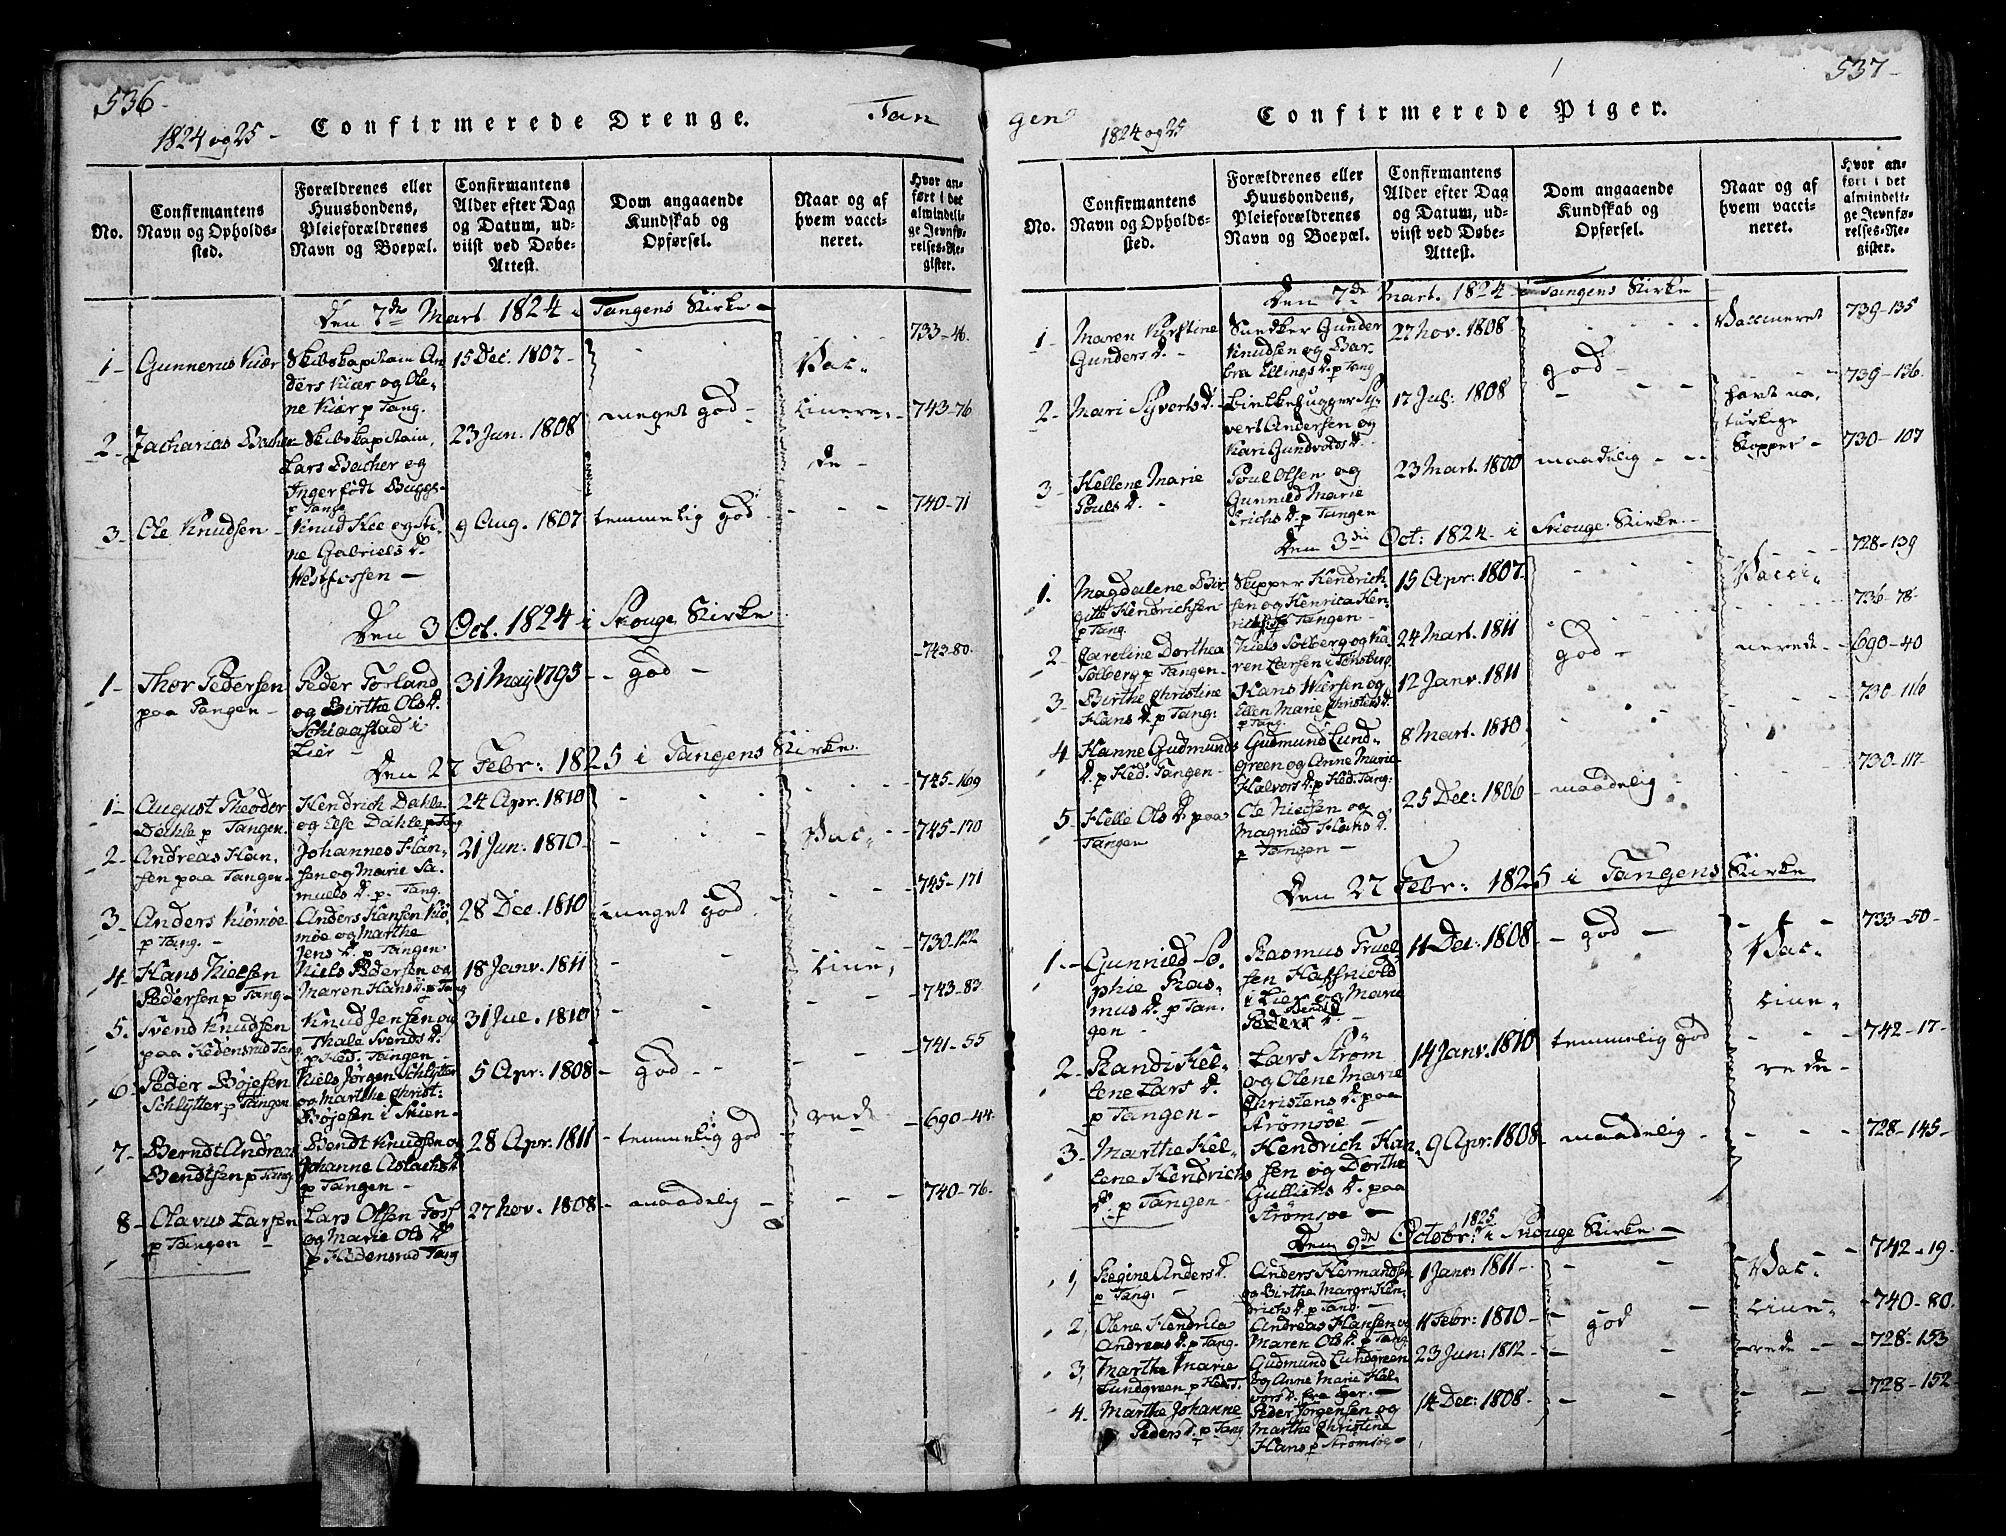 536
1824 og 25 -
Confirmerede Drenge.
Tan
No.
Confirmantens Navn og Opholdssted.
Forældrenes eller Huusbondens, Pleieforældrenes Navn og Boepæl.
Confirmantens Alder efter Dag og Datum, udviist ved Døbe-Attest.
Dom angaaende Kundskab og Opførsel.
Naar og af hvem vaccineret.
Hvor anført i det almindelige Jevnførelses-Register.
Den 7de Mart 1824 i Tangens Kirke -
1 - Gunnerus Kiær
Skibskapitain Anders Kiær og Olene Kiær p Tang.
15 Dec. 1807 -
Vac-
733-46.
2 - Zacharias Bacher
Skibskapitain Lars Bacher og Inger født Buggs- p Tange
23 Jun. 1808
meget god -
cinere-
de -
743-76
3 - Ole Knudsen -
Knud Skee og Stine Gabriels D. Westfossen -
9 Aug. 1807
temmelig god
740-71
Den 3 Oct. 1824 i Skouge Kirke
1 - Thor Pedersen paa Tangen -
Peder Torland og Birthe Ols D. i Lier -
31 Maj 1795
- god -
- 743-80.
Den 27 Febr: 1825 i Tangens Kirke.
1 - August Theodor Dahle p Tangen.
Hendrich Dahle og Else Dahle p Tang
24 Apr. 1810
745-169
2 - Andreas Hansen paa Tangen -
Johannes Hansen og Marie Samuels D. p. Tang.
21 Jun. 1810
Vac-
745-170
3 - Anders Kiömöe p Tang. -
Anders Hansen Kiömöe og Marthe Jens D. p Tangen.
28 Dec. 1810
meget god.
745-171
4 - Hans Nielsen Pedersen p Tang -
Niels Pedersen og Maren Hans D. p Tang
18 Janv. 1811
cine,
730-122
5. Svend Knudsen paa Hedensrud Tang
Knud Jensen og Thale Svends D. p Hed. Tangen -
31 Jul. 1810
743-83
6 - Peder Böjesen Schlytter p Tangen
Niels Jörgen Schlytter og Marthe Christ: Böjesen i Skien -
5 Apr: 1808
- god - -
741-55
7 - Berndt Andreas Bendtsen p Tang
Bendt Knudsen og Johanne Aslachs D. p Tangen -
28 Apr. 1811
- temmelig god
rede
690-44.
8 - Olavus Larsen p Tangen -
Lars Olsen Foss og Marie Ols D p Hedensrud Tang
27 Nov. 1808
- maadelig -
740-76.
537 -
gen
1824 og 25
Confirmerede Piger.
No.
Confirmantens Navn og Opholdssted.
Forældrenes eller Huusbondens, Pleieforældrenes Navn og Boepæl.
Confirmantens Alder efter Dag og Datum, udviist ved Døbe-Attest.
Dom angaaende Kundskab og Opførsel.
Naar og af hvem vaccineret.
Hvor anført i det almindelige Jevnførelses-Register.
Den 7de Mart. 1824 i Tangens Kirke
1 - Maren Kirstine Gunders D. -
Snedker Gunder Knudsen og Barbra Ellings D. p Tang
27 Nov. 1808
god -
Vaccineret
739-135
2 - Mari Syverts D. -
Bielkehugger Syvert Andersen og Kari Gundvolds D.
17 Jul: 1808
havt naturlige Kopper -
739-136.
3 - Hellene Marie Pouls D. -
Poul Olsen og Gunnild Marie Erichs D. p Tangen
23 Mart. 1800
maadelig - -
730-107
Den 3die Oct: 1824 i Skouge Kirke -
1. Magdalene Birgitt Hendrichsen p Tang.
Skipper Hendrichsen og Henrica Henrichsen p Tangen -
15 Apr: 1807
Vacci-
728-139
2 - Caroline Dorthea Solberg p Tangen -
Niels Solberg og Karen Larsen i Tonsberg
24 Mart. 1811
god -
nerede -
736-78-
3 - Birthe Christine Hans D. p Tang:
Hans Wiersen og Ellen Marie Christens D. p Tang.
12 Janv. 1811
690-40
4 Hanne Gudmunds D. p Hed. Tangen -
Gudmund Lundgreen og Anne Marie Halvors D. p Hed. Tang.
8 Mart. 1810
730-116
5 - Helle Ols D. paa Tangen
Ole Nielsen og Magnild D. p Tangen -
25 Dec: 1806
- maadelig
730-117-
Den 27 Febr: 1825 i Tangens Kirke
1. - Gunnild Sophie Rasmus D. p Tangen -
Rasmus Truelsen i Lier og Marie Peders D. -
11 Dec: 1808
- god -
Vac-
cine-
733-50-
2 - Randi Hellene Lars D. p Tangen -
Lars Ström og Olene Marie Christens D. paa Strömsöe -
14 Janv. 1810
temmelig god
rede -
742-17-
3 - Marthe Hellene Hendrichs D. p Tangen -
Hendrich Hansen og Dorthe Gullichs D. paa Strömsoe -
9 Apr. 1808
- maadelig -
728-145-
Den 9de Octobr: 1825 i Skouge Kirke -
1, Regine Anders D. p Tang: -
Anders Hermandsen og Birthe Margr: Hendrichs D. p Tang. -
1 Janv. 1811 -
Vac-
742-19.
2, Olene Hendrica Andreas D. p Tang.
Andreas Hansen og Maren Ols D. p Tang.
11 Febr: 1810 -
god
cine-
740-80.
3, Marthe Marie Lundgreen p Hed. T.
Gudmund Lundgreen og Anne Marie Halvors D. fra Eger. -
23 Jun: 1812 -
- rede -
728-153
4. Marthe Johanne Peders D. p Tang.
Peder Jörgensen og Marthe Christine Hans p Strömsoe -
14 Dec: 1808 -
728-152